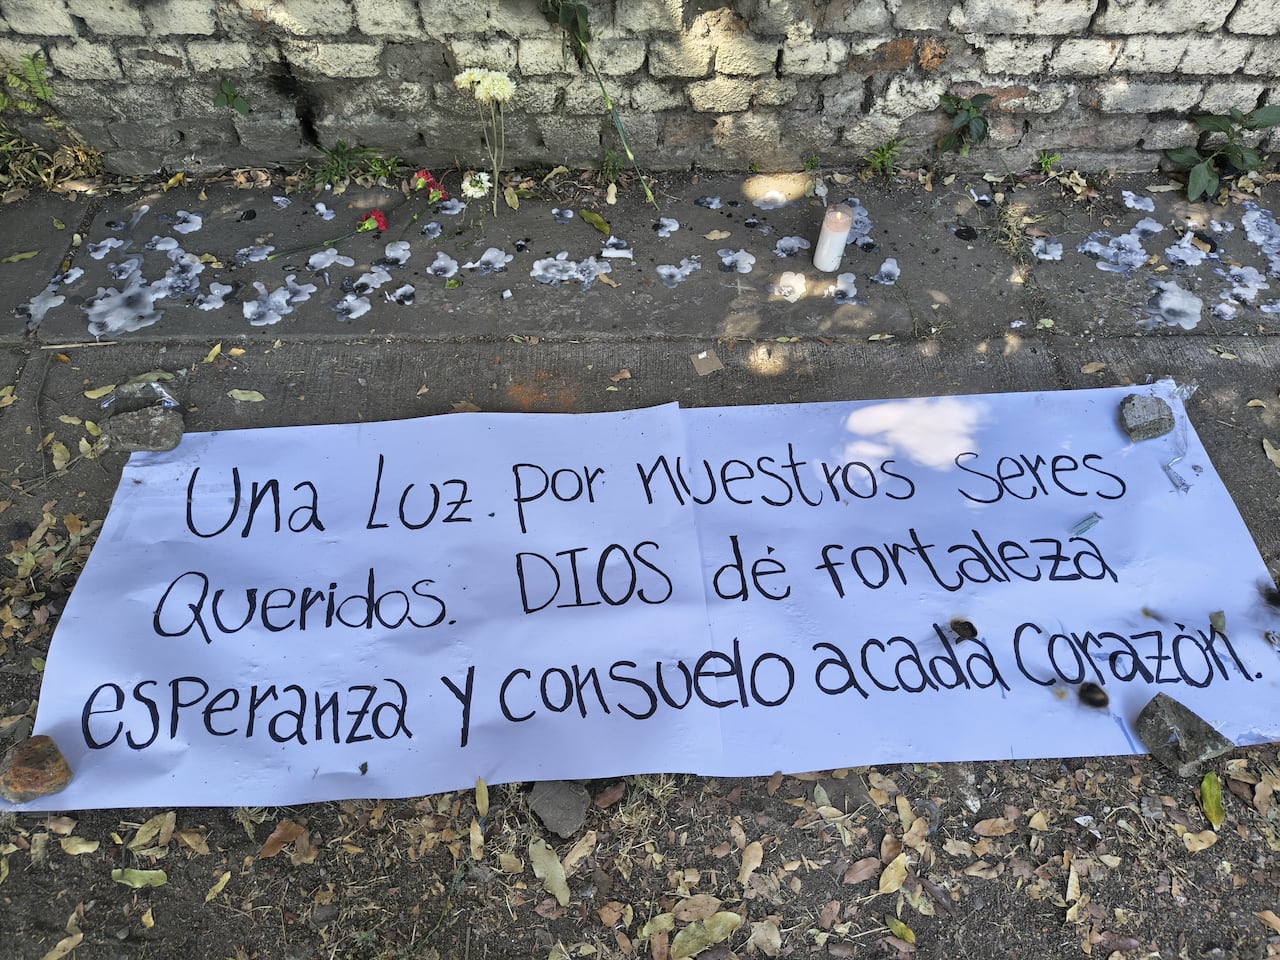 Una Luz. por nuestros seres
Queridos. DIOS dé fortaleza
esperanza y consuelo acada corazón.